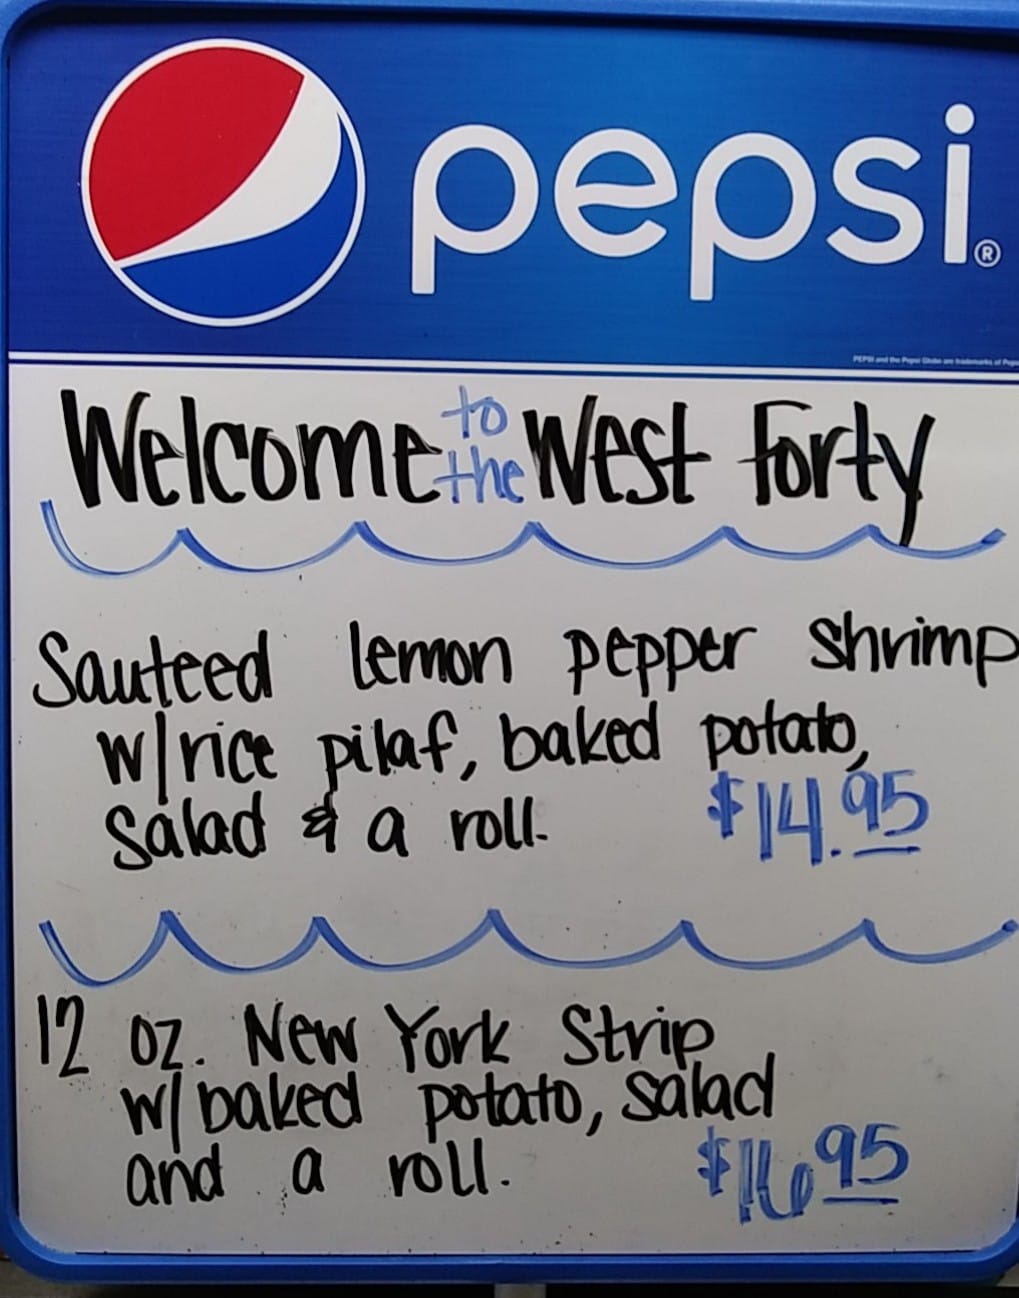 pepsi®
PEPSI and the Pepsi Globe are trademarks of
Welcome to the West Forty
Sauteed lemon pepper shrimp
w/rice pilaf, baked potato,
Salad & a roll. $14.95
12 oz. New York Strip
w/baked potato, salad
and a roll. $16 95